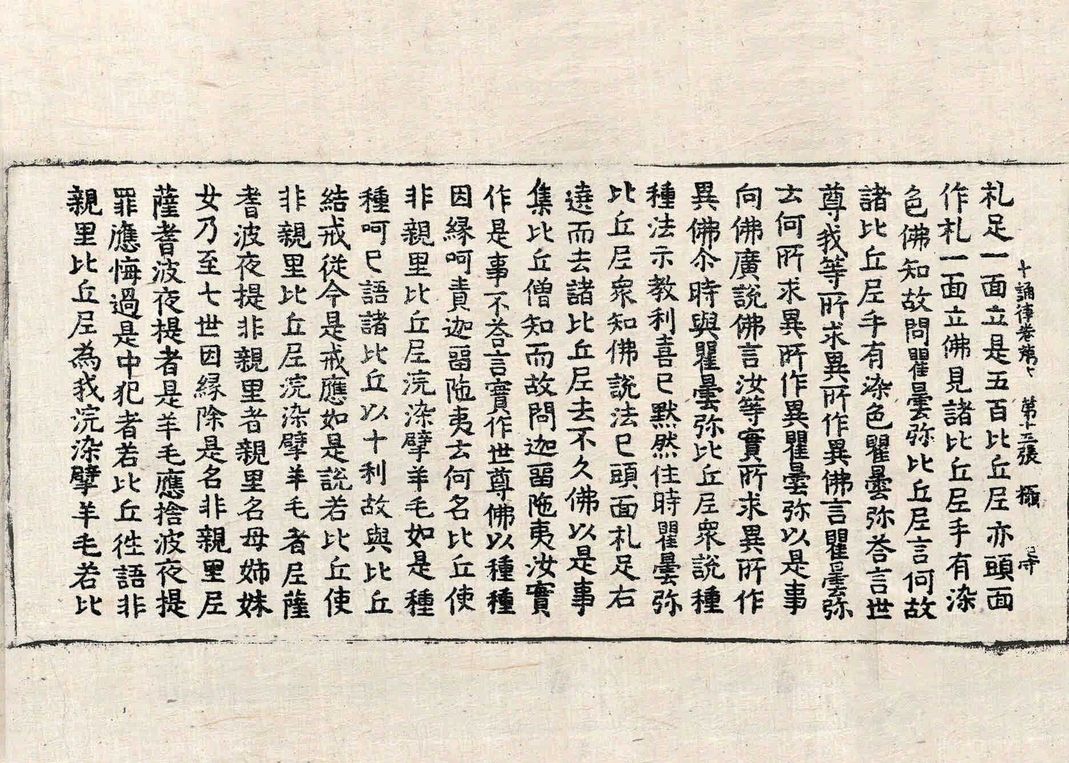 礼足一面立是五百比丘尼亦頭面
十誦律卷第七 第十三張 攝
作礼一面立佛見諸比丘尼手有染
色佛知故問瞿曇弥比丘尼言何故
諸比丘尼手有染色瞿曇弥荅言世
尊我等所求異所作異佛言瞿曇弥
云何所求異所作異瞿曇弥以是事
向佛廣說佛言汝等實所求異所作
異佛尒時與瞿曇弥比丘尼衆說種
種法示教利喜已默然住時瞿曇弥
比丘尼衆知佛說法已頭面礼足右
遶而去諸比丘尼去不久佛以是事
集比丘僧知而故問迦留陁夷汝實
作是事不荅言實作世尊佛以種種
因縁呵責迦留陁夷云何名比丘使
非親里比丘尼浣染擘羊毛如是種
種呵已語諸比丘以十利故與比丘
結戒從今是戒應如是說若比丘使
非親里比丘尼浣染擘羊毛者尼薩
耆波夜提非親里者親里名母姉妹
女乃至七世因縁除是名非親里尼
薩耆波夜提者是羊毛應捨波夜提
罪應悔過是中犯者若比丘徃語非
親里比丘尼為我浣染擘羊毛若比